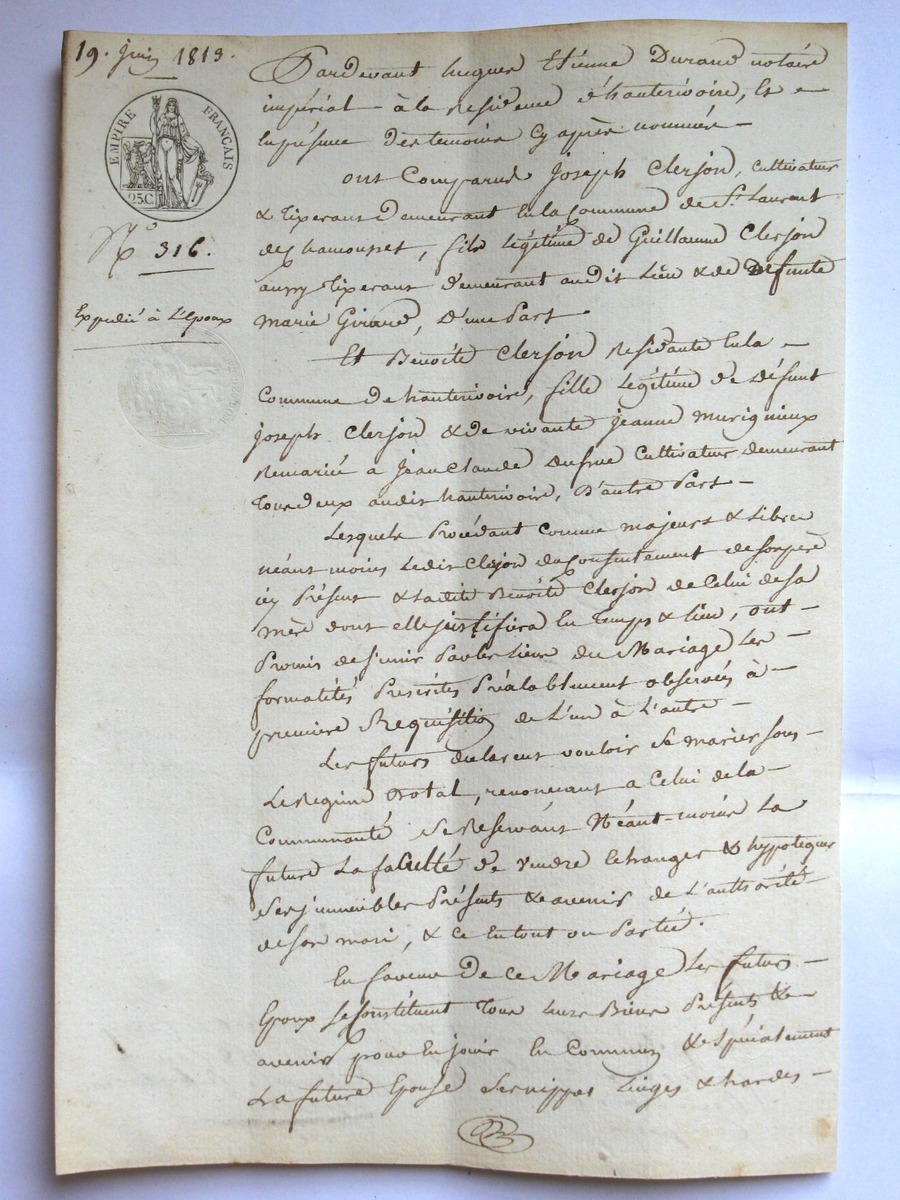 19. juin 1813.
EMPIRE FRANÇAIS
25C
N.o 316.
Expedié à L'Epoux
Pardevant hugues Etienne Durand notaire
impérial - à la Residence d'hauterivoire, Et =
Enprésence des temoins Cy après nommés -
ont Comparus Joseph Clerjon, Cultivateur
& tixerant Demeurant En la Commune de St. Laurent
de Chamousset, fils Légitime de Guillaume Clerjon
aussy tixerant demeurant audit Lieu & de Defunte
Marie Giraud, D'une Part
Et Benoite Clerjon Residante En la -
Commune de hauterivoire, fille Légitime de Défunt
joseph Clerjon & de vivante jeanne Murigneux
Remariée a Jean Claude Dufrue Cultivateur demeurant
Tous deux audit hauterivoire, D'autre Part -
Lesquels Procédant Comme majeurs & Libres
néant moins Ledit Clerjon du Consentement de son père
icy Présent & Ladite Benoite Clerjon de Celui de sa
mère dont elle justifiera En Temps & lieu, ont -
Promis de s'unir Par les Liens du Mariage Les -
formalités Prescrites Préalablement observées à -
première Requisition de L'un à L'autre -
Les futurs declarent vouloir se marier sous -
Le Regime Dotal, renoncent a Celui de la -
Communauté se Reservant Néant-moins La
future La faculté de vendre Echanger & hypotequer
Ses jmmeubles Présents & avenir de L'authorité
de son mari, & Ce En tout ou Partie.
En faveur de Ce Mariage Les futurs -
Epoux se Constituent Tous Leurs Biens Présents & -
avenir pour En jouir En Commun & spécialement
La future Epouse Ses nippes Linges & hardes -